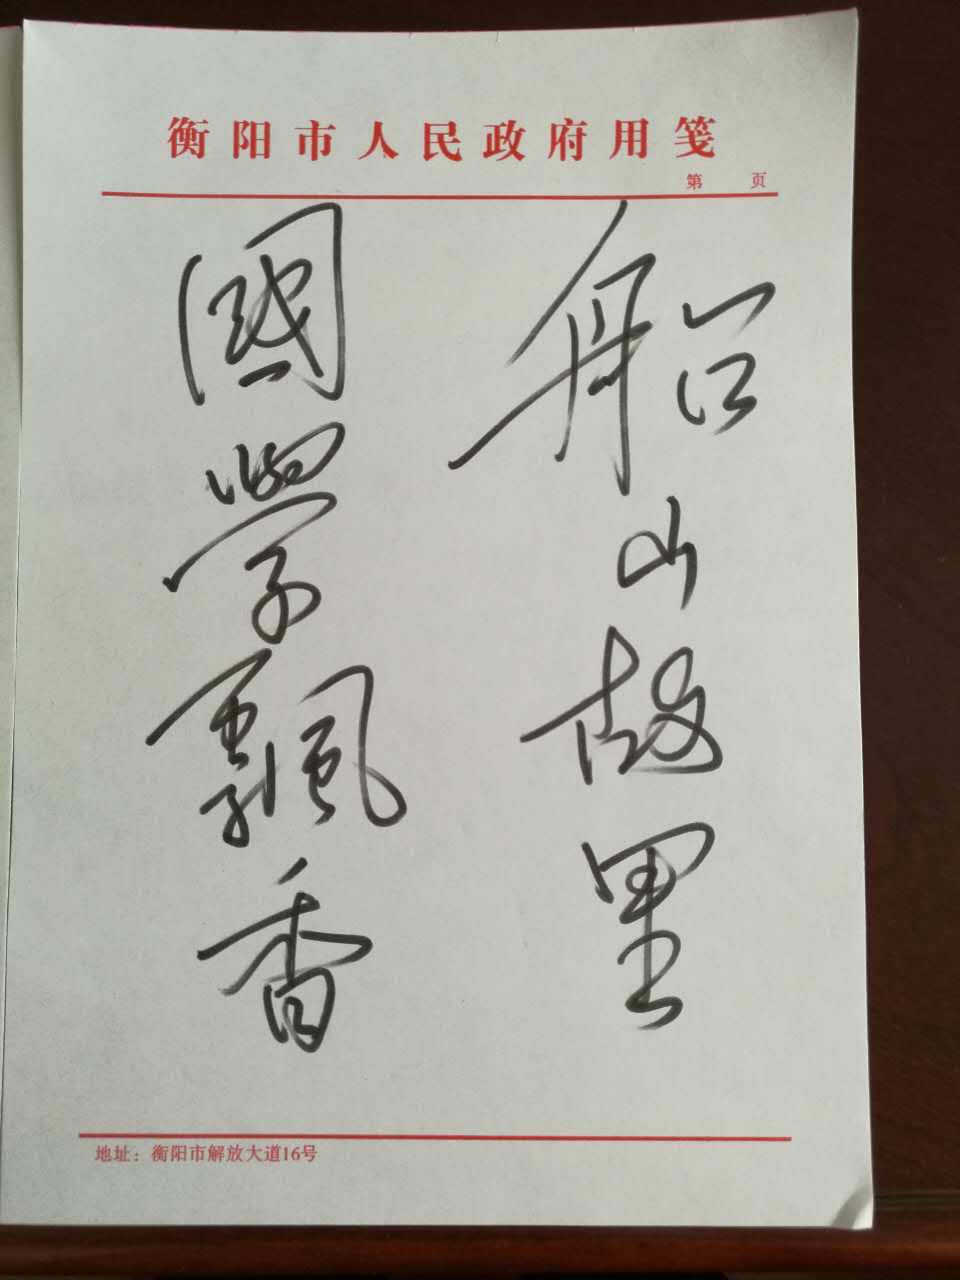 衡阳市人民政府用笺
第 页
船山故里
國學飄香
地址：衡阳市解放大道16号